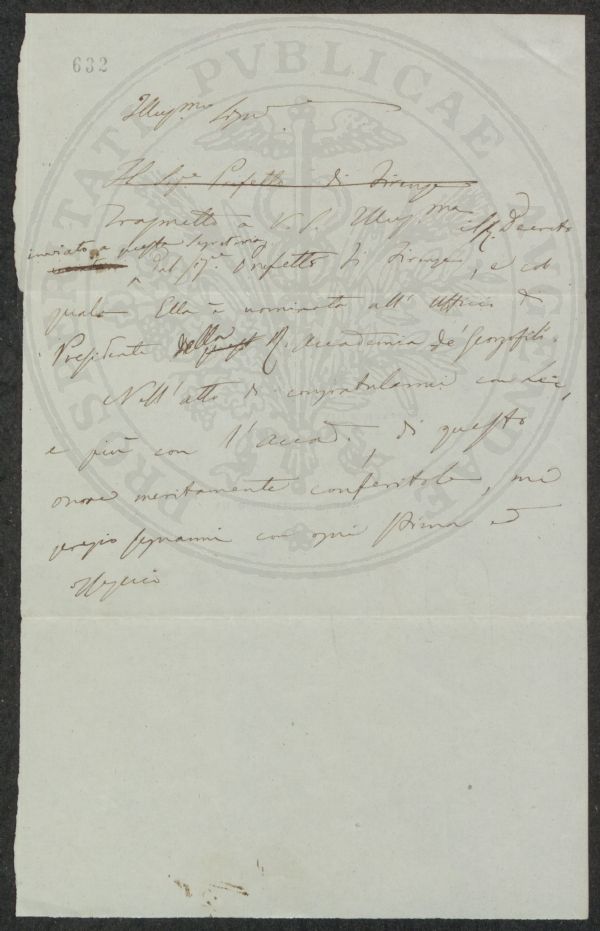 632
PROSPERITATI PVBLICAE AVGENDAE
Illus.mo Sig.r
Il Sig.e Prefetto di Firenze
Trasmetto à V. S. Illus.ma il R. Decreto
inviato a questa Segreteria
dal Sig.r Prefetto di Firenze, e col
quale Ella è nominata all' Ufficio di
Presidente della R. Accademia de' Georgofili.
Nell' atto di congratularmi con Lei,
e più con l' Accad., di questo
onore meritamente conferitole, mi
pregio segnarmi con ogni stima ed
ossequio